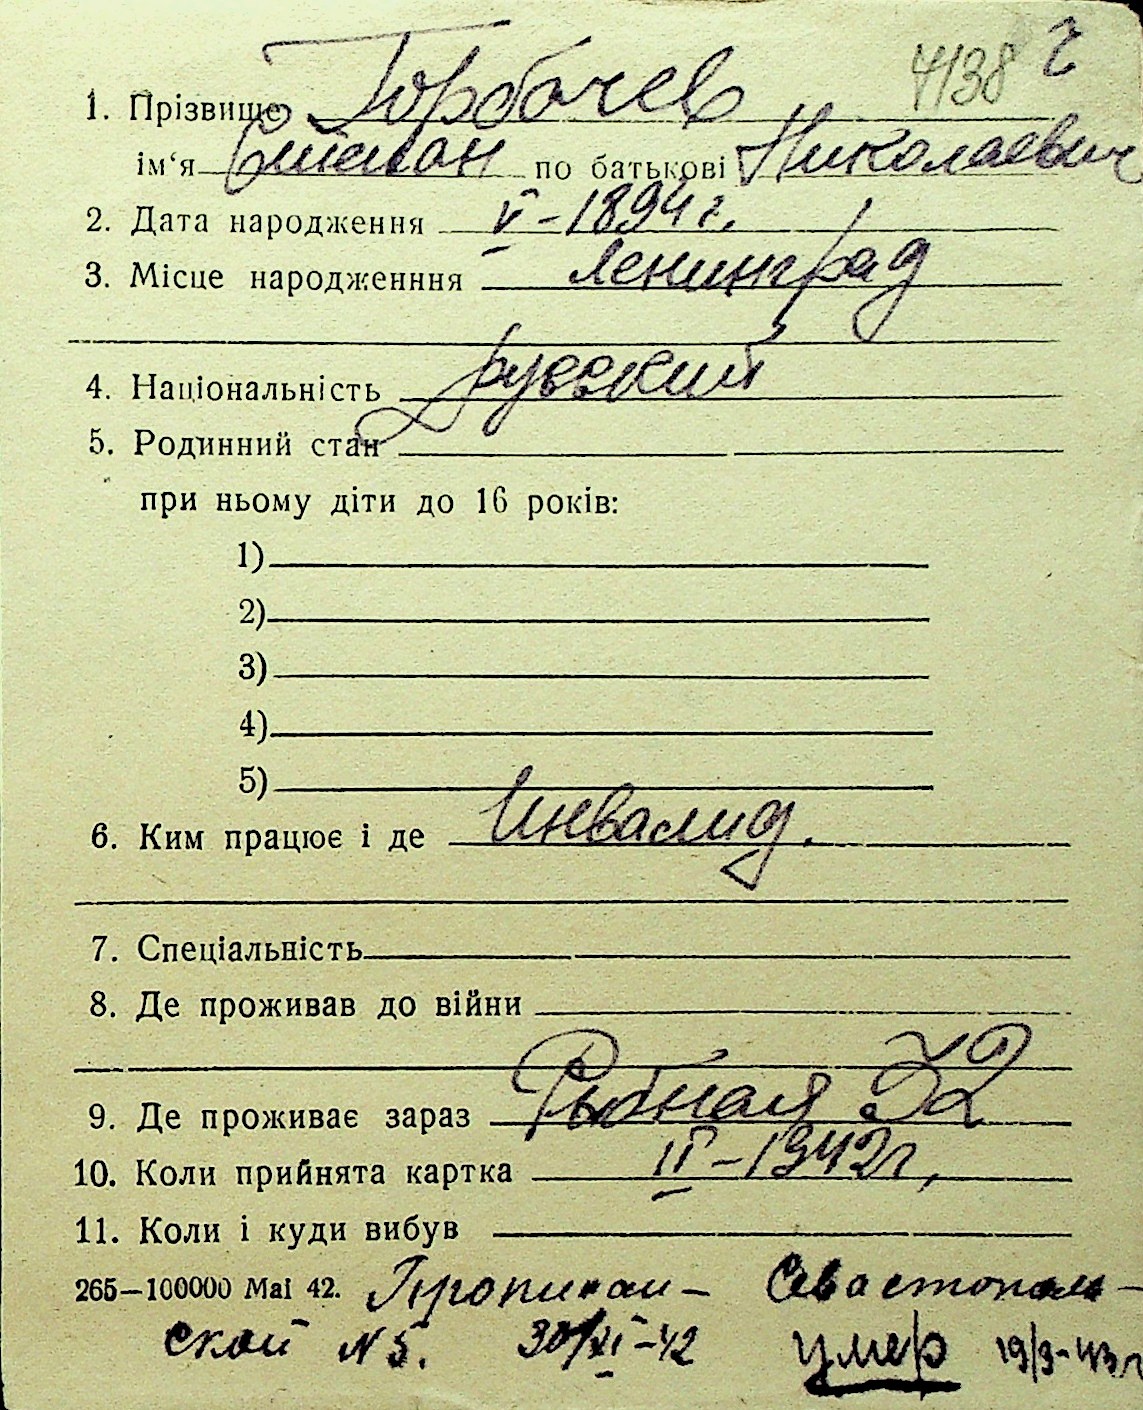 4138 г
1. Прізвище Горбачев
ім‘я Степан по батькові Николаевич
2. Дата народження V – 1894 г.
3. Місце народженння Ленинград
4. Національність русский
5. Родинний стан
при ньому діти до 16 років:
1)
2)
3)
4)
5)
6. Ким працює і де Инвалид.
7. Спеціальність
8. Де проживав до війни
9. Де проживає зараз Рыбная 32
10. Коли прийнята картка II – 1942 г,
11. Коли і куди вибув
265—100000 Маі 42. Прописан – Севастополь–
ской N 5. 30/XI–42 умер 19/3–43 г